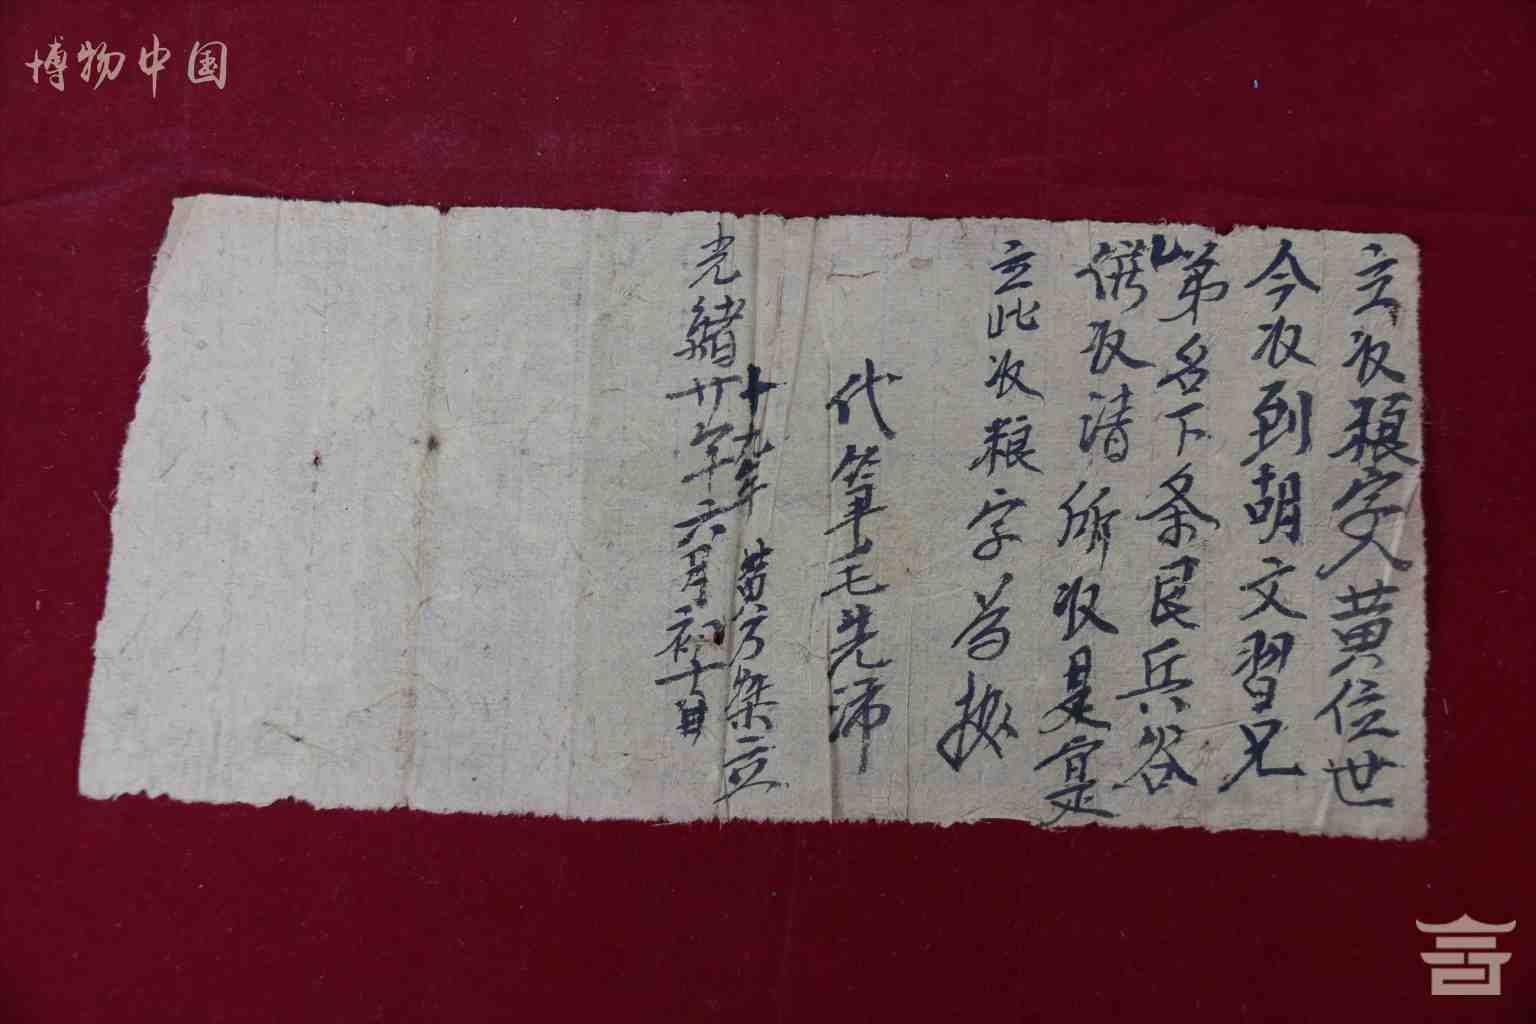 博物中国
立收粮字人黄位世
今收到胡文習兄
弟名下条艮兵谷
俱收清所收是寔
立此收粮字为据
代筆毛先沛
十九年 黄方榘立
光緒廿年六月初十日